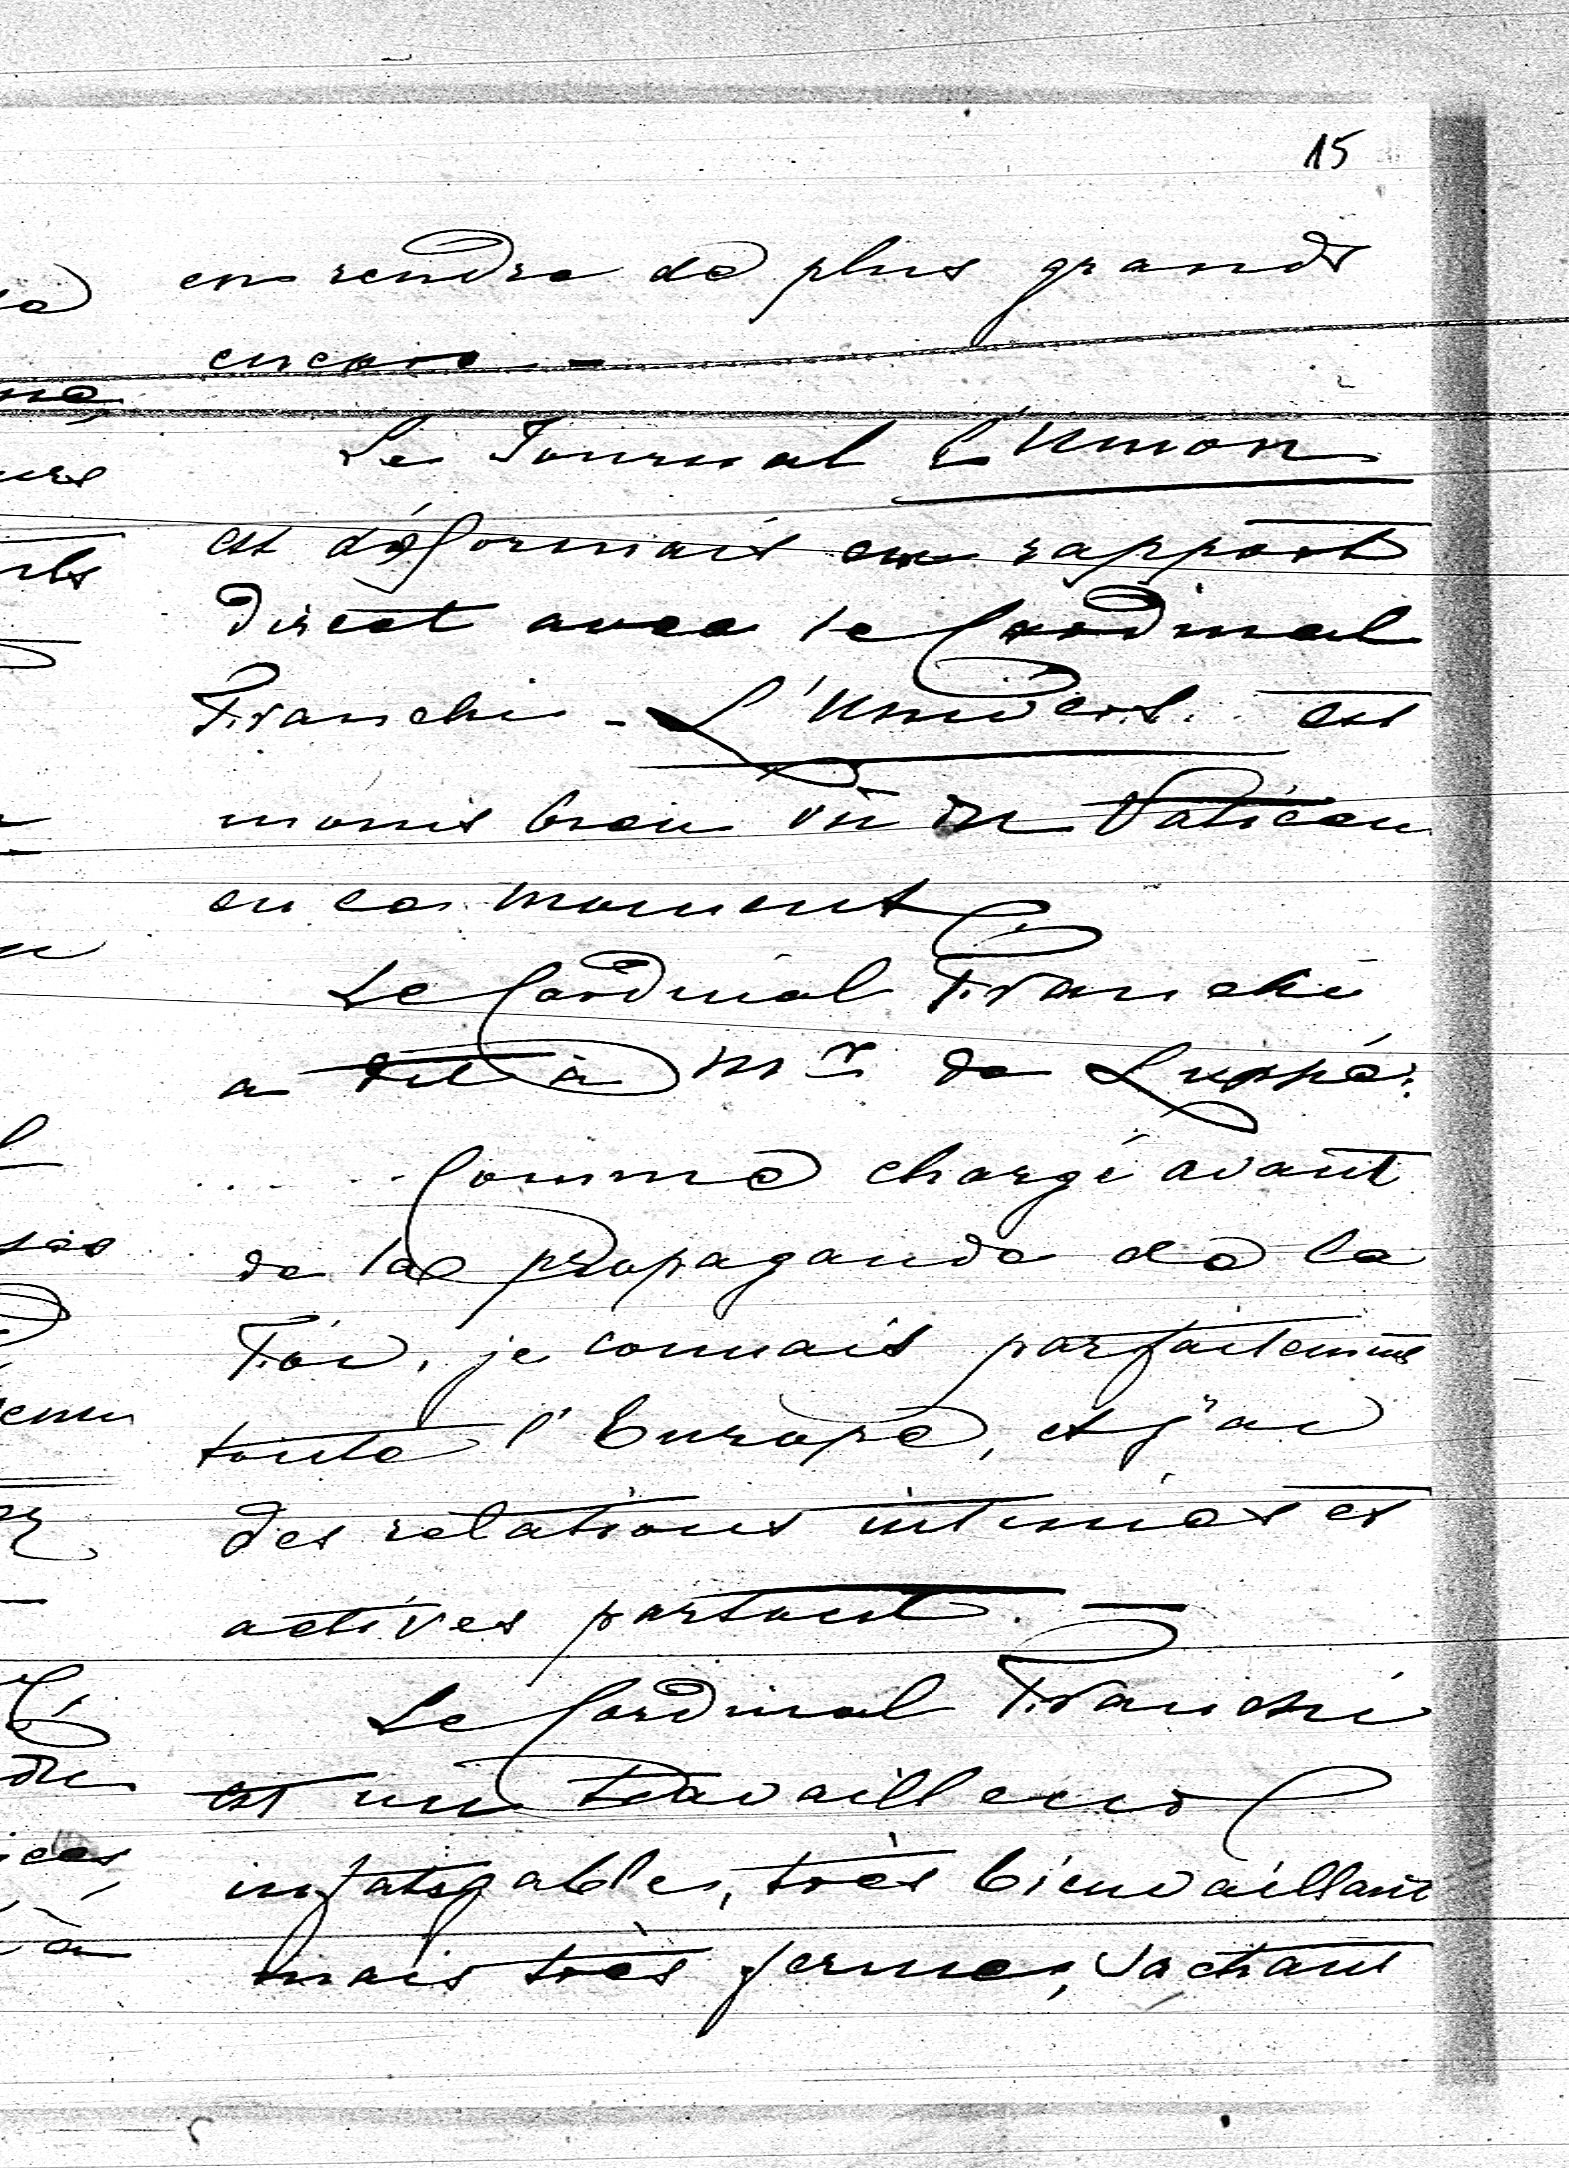 15
en rendre de plus grands
encore. -
Le Journal L'Union
est désormais en rapport
direct avec le Cardinal
Franchi - L'Univers est
moins bien vû du Vatican
en ce moment
Le Cardinal Franchi
a dit à Mr de Luppé:
..... Comme chargé avant
de la propagande de la
Foi, je connais parfaitement
toute l'Europe, et j'ai
des relations intimes et
actives partout. -
Le Cardinal Franchi
est un travailleur
infatigable, très bienveillant
mais très ferme, sachant